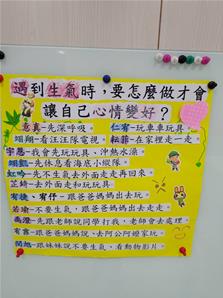 遇到生氣時，要怎麼做才會
讓自己心情變好？
意真-先深呼吸。 仁宥-玩車車玩具。
翊翔-看汪汪隊電視。 耘菲-在家裡走一走。
宇恩-我會先玩玩具、沖熱水澡。
翊凱-先休息看海底小縱隊。
虹吟-先不生氣去外面走走再回來。
芷綺-去外面走和玩玩具。
宥捷、宥仔-跟爸爸媽媽出去玩。
若瑜-不要生氣，跟爸爸媽媽出去走走。
禹澄-先跟老師說同學打我，老師會去處理。
宥喬-跟爸爸媽媽說、去阿公阿嬤家玩。
開允-跟妹妹說不要生氣、看動物影片。